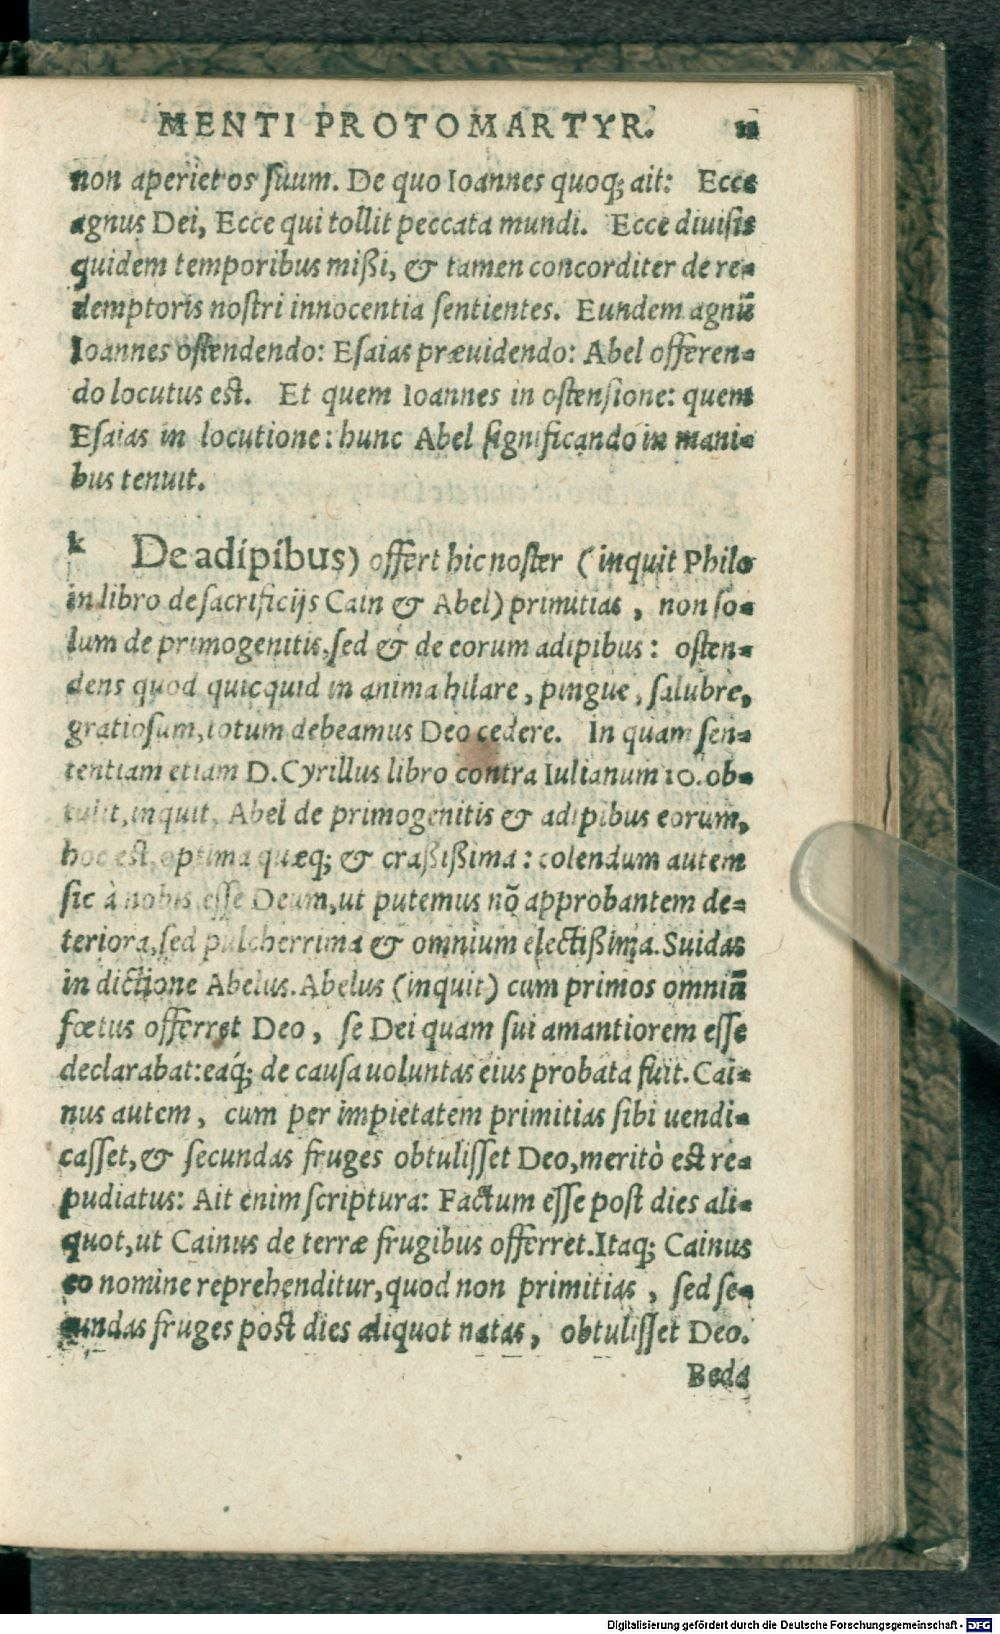 MENTI PROTOMARTYR. 11
non aperiet os ſuum. De quo Ioannes quoq; ait: Ecce
agnus Dei, Ecce qui tollit peccata mundi. Ecce diuiſis
quidem temporibus mißi, & tamen concorditer de re=
demptoris noſtri innocentia ſentientes. Eundem agnũ
Ioannes oſtendendo: Eſaias præuidendo: Abel offeren=
do locutus eſt. Et quem Ioannes in oſtenſione: quem
Eſaias in locutione: hunc Abel ſignificando in mani=
bus tenuit.
k De adipibus) offert hic noſter (inquit Philo
in libro de ſacrificijs Cain & Abel) primitias, non ſo=
lum de primogenitis, ſed & de eorum adipibus: oſten=
dens quod quicquid in anima hilare, pingue, ſalubre,
gratioſum, totum debeamus Deo cedere. In quam ſen=
tentiam etiam D. Cyrillus libro contra Iulianum 10. ob=
tulit, inquit, Abel de primogenitis & adipibus eorum,
hoc eſt, optima quæq; & craßißima: colendum autem
ſic à nobis eſſe Deum, ut putemus nõ approbantem de=
teriora, ſed pulcherrima & omnium electißima. Suidas
in dictione Abelus. Abelus (inquit) cum primos omniũ
fœtus offerret Deo, ſe Dei quam ſui amantiorem eſſe
declarabat: eáq; de cauſa uoluntas eius probata fuit. Cai=
nus autem, cum per impietatem primitias ſibi uendi=
caſſet, & ſecundas fruges obtuliſſet Deo, meritò eſt re=
pudiatus: Ait enim ſcriptura: Factum eſſe poſt dies ali=
quot, ut Cainus de terræ frugibus offerret. Itaq; Cainus
eo nomine reprehenditur, quod non primitias, ſed ſe=
cundas fruges poſt dies aliquot natas, obtuliſſet Deo.
Beda
Digitalisierung gefördert durch die Deutsche Forschungsgemeinschaft - DFG